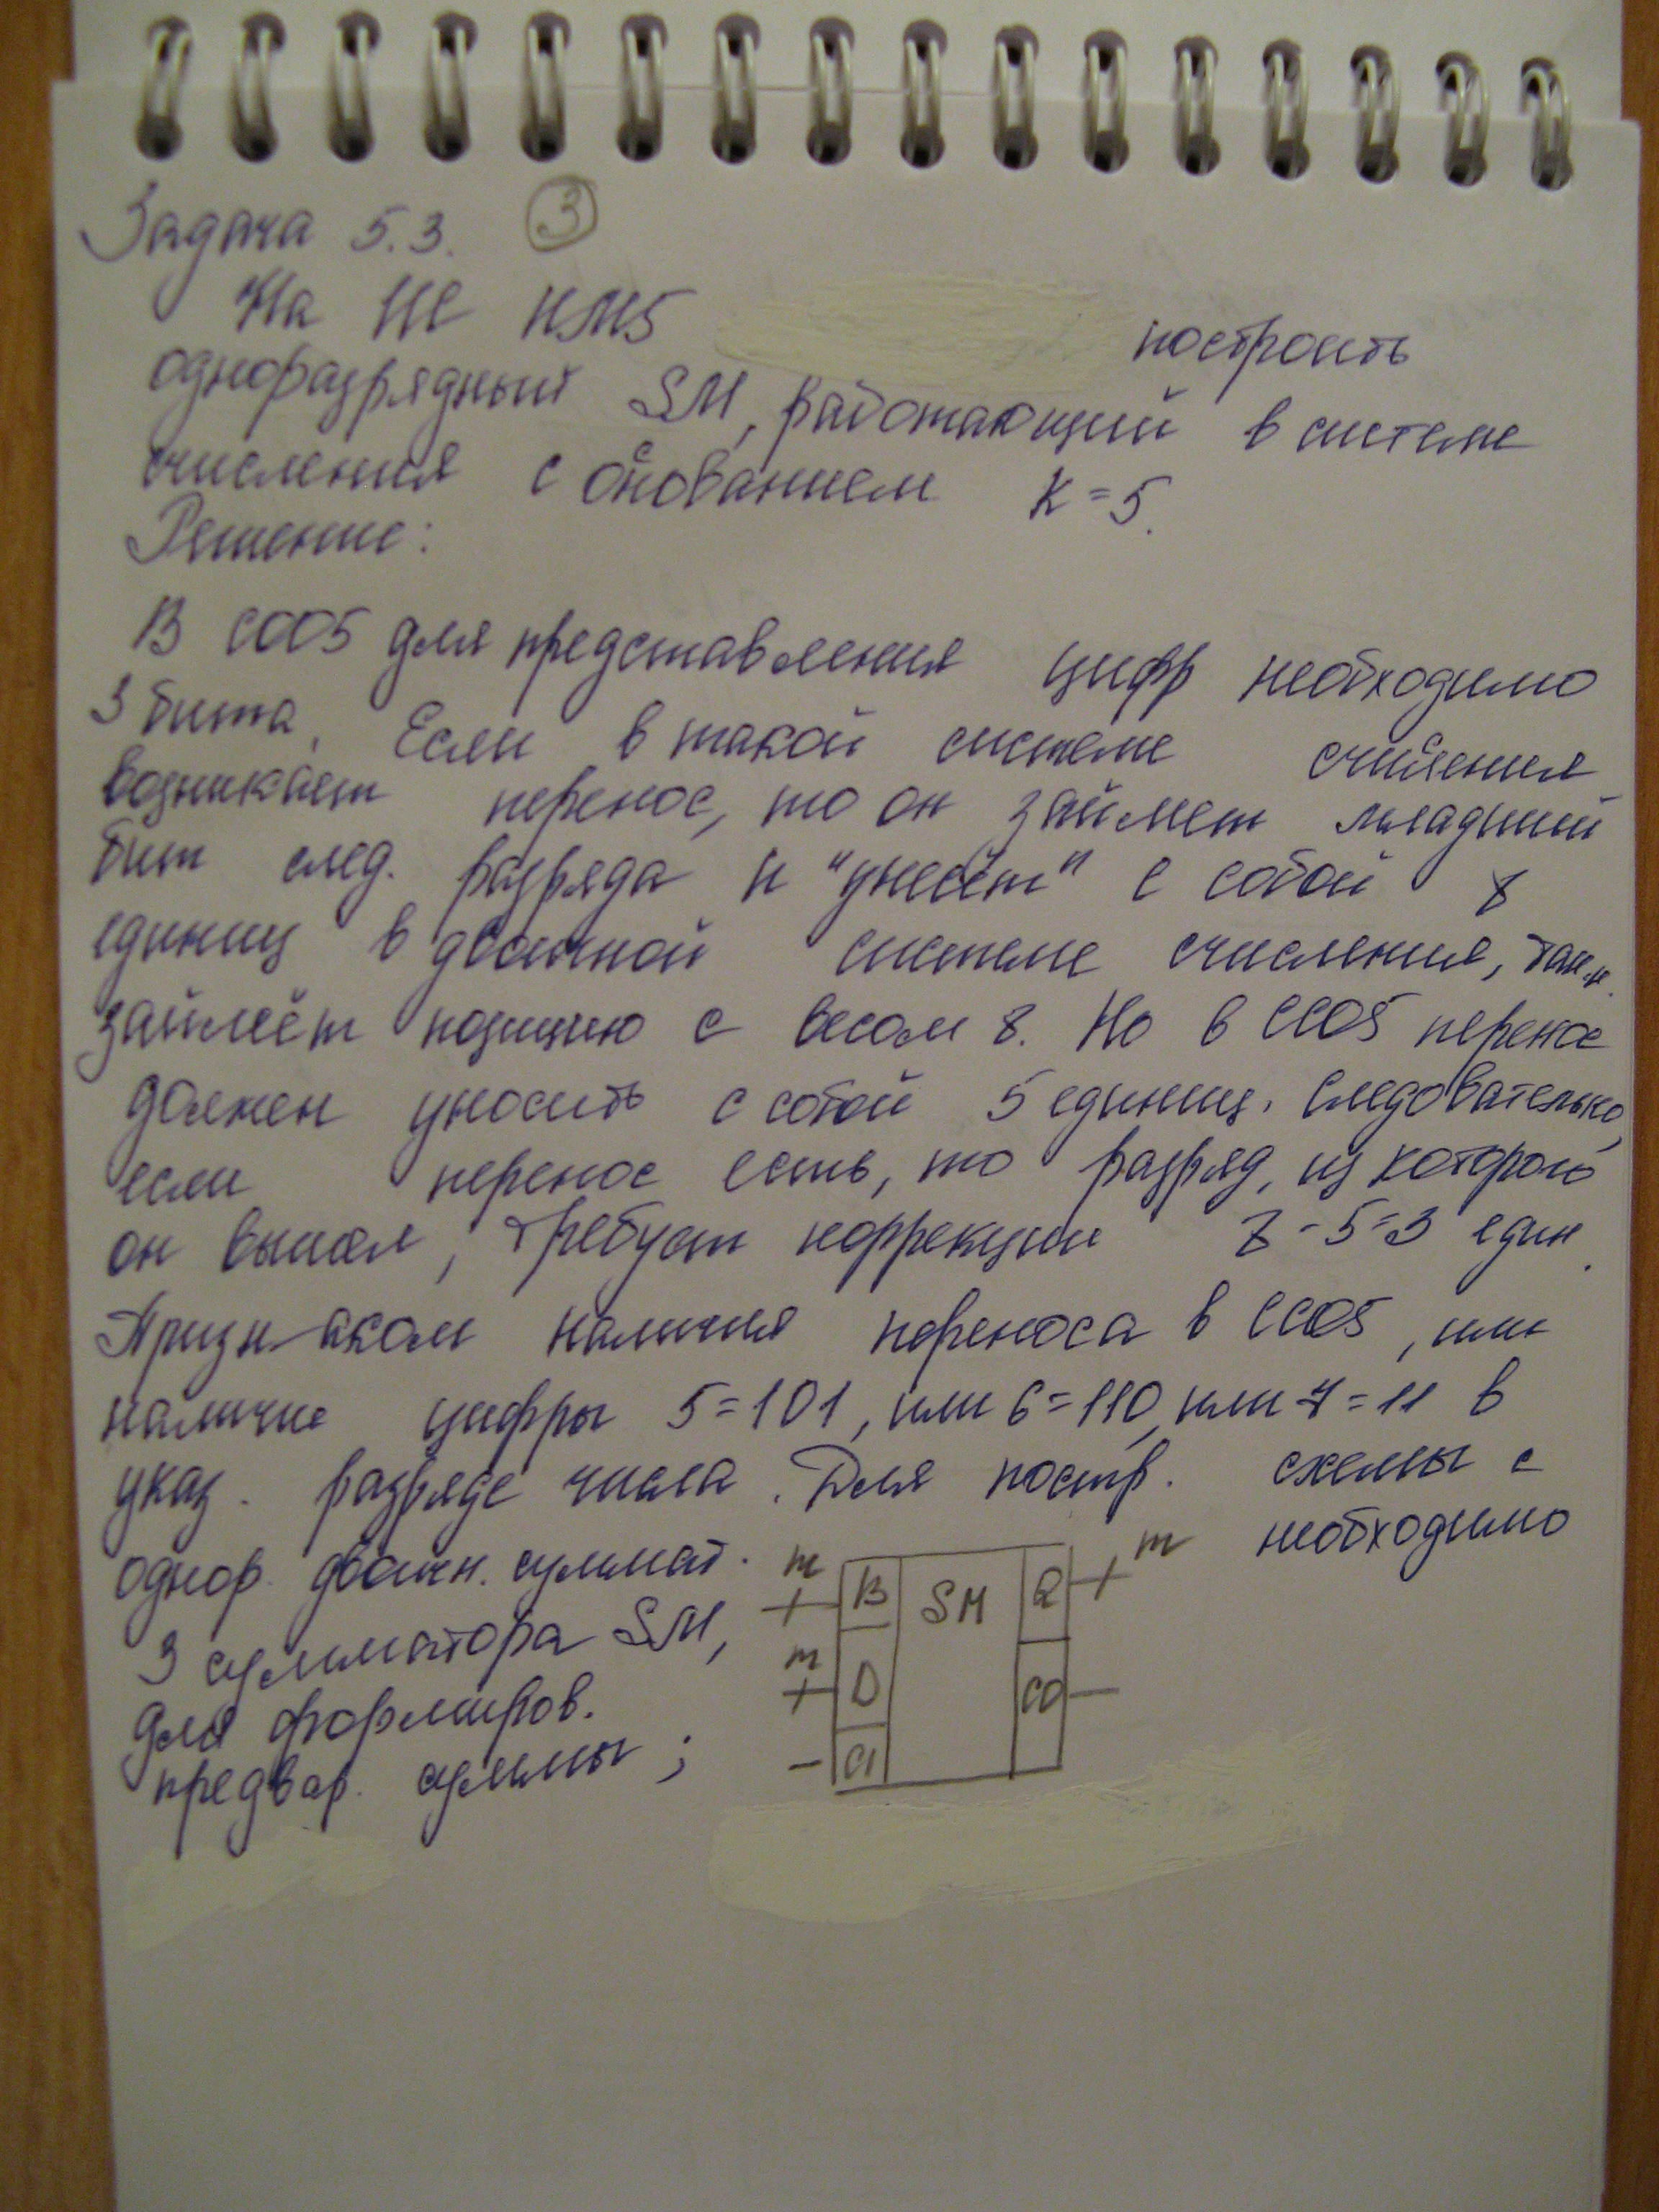 Задача 5.3. ③
На ИС ИМ5 построить
одноразрядный SM, работающий в системе
счисления с основанием K=5.
Решение:
В СОО5 для представления цифр необходимо
3 бита. Если в такой системе счисления
возникает перенос, то он займет младший
бит след. разряда и "унесёт" с собой 8
единиц в двоичной системе счисления, так.к.
займёт позицию с весом 8. Но в ССО5 перенос
должен уносить с собой 5 единиц. Следовательно,
если перенос есть, то разряд, из которого
он вышел, требует коррекции 8-5=3 един.
Признаком наличия переноса в ССО5, или
наличие цифры 5=101, или 6=110, или 7=11 в
указ. разряде числа. Для постр. схемы с
однор. двоичн. суммат. необходимо
3 сумматора SM,
для формиров.
предвар. суммы;
m B SM Q m
m D CO
CI